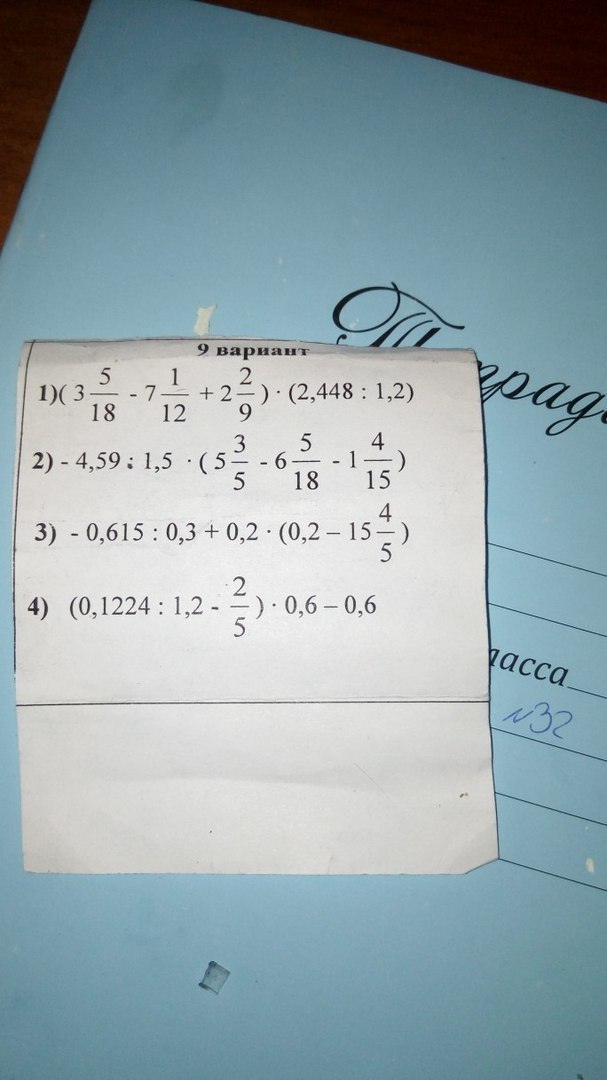 Тетрадь
9 вариант
1)( 3 5/18 - 7 1/12 + 2 2/9 ) · (2,448 : 1,2)
2) - 4,59 : 1,5 · ( 5 3/5 - 6 5/18 - 1 4/15 )
3) - 0,615 : 0,3 + 0,2 · (0,2 – 15 4/5 )
4) (0,1224 : 1,2 - 2/5 ) · 0,6 – 0,6
ласса
№32